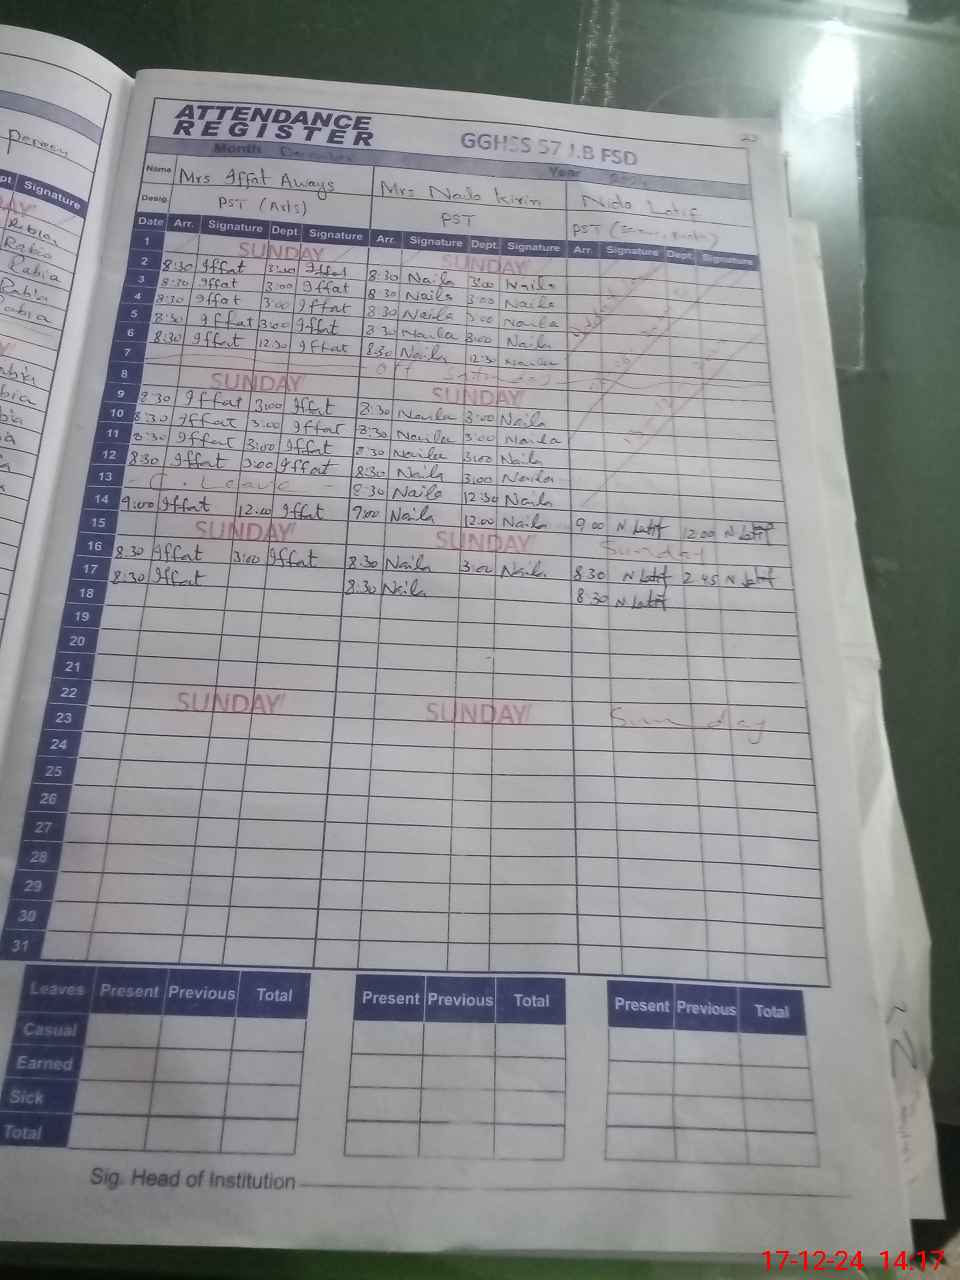 ATTENDANCE
REGISTER
GGHSS 57 J.B FSD
Month December Year 2024
Name Mrs Iffat Aways Mrs Naila Kirin Nida Latif
Desig. PST (Arts) PST PST
Date Arr. Signature Dept. Signature Arr. Signature Dept. Signature Arr. Signature Dept. Signature
1 SUNDAY SUNDAY
2 8:30 Iffat 3:00 Iffat 8:30 Naila 3:00 Naila
3 8:30 Iffat 3:00 Iffat 8:30 Naila 3:00 Naila
4 8:30 Iffat 3:00 Iffat 8:30 Naila 3:00 Naila
5 8:30 Iffat 3:00 Iffat 8:30 Naila 3:00 Naila
6 8:30 Iffat 12:30 Iffat 8:30 Naila 12:30 Naila
7 Off
8 SUNDAY SUNDAY
9 8:30 Iffat 3:00 Iffat 8:30 Naila 3:00 Naila
10 8:30 Iffat 3:00 Iffat 8:30 Naila 3:00 Naila
11 8:30 Iffat 3:00 Iffat 8:30 Naila 3:00 Naila
12 8:30 Iffat 3:00 Iffat 8:30 Naila 3:00 Naila
13 - C. Leave - 8:30 Naila 12:30 Naila
14 9:00 Iffat 12:00 Iffat 9:00 Naila 12:00 Naila 9:00 N Latif 12:00 N Latif
15 SUNDAY SUNDAY Sunday
16 8:30 Iffat 3:00 Iffat 8:30 Naila 3:00 Naila 8:30 N Latif 2:45 N Latif
17 8:30 Iffat 8:30 Naila 8:30 N Latif
18
19
20
21
22 SUNDAY SUNDAY Sunday
23
24
25
26
27
28
29
30
31
Leaves Present Previous Total Present Previous Total Present Previous Total
Casual
Earned
Sick
Total
Sig. Head of Institution
Signature
Rabia
Rabia
Rabia
Rabia
Rabia
17-12-24 14:17